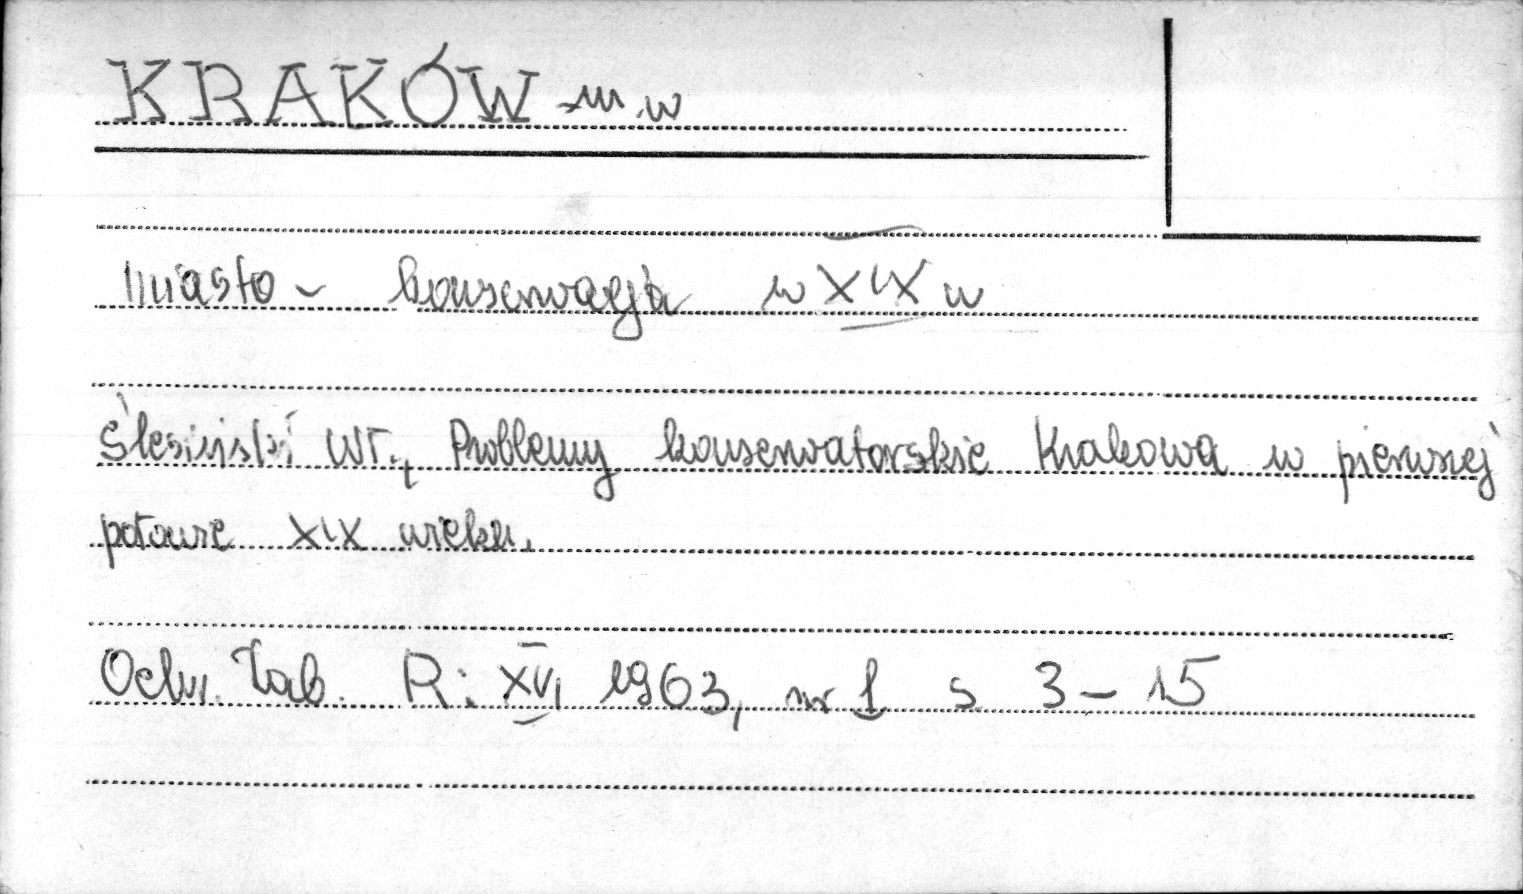 KRAKÓW m.w
Miasto - konserwacja w XIX w
Ślesiński Wł., Problemy konserwatorskie Krakowa w pierwszej
połowie XIX wieku.
Ochr. Zab. R: XVI 1963, nr 1 s 3-15